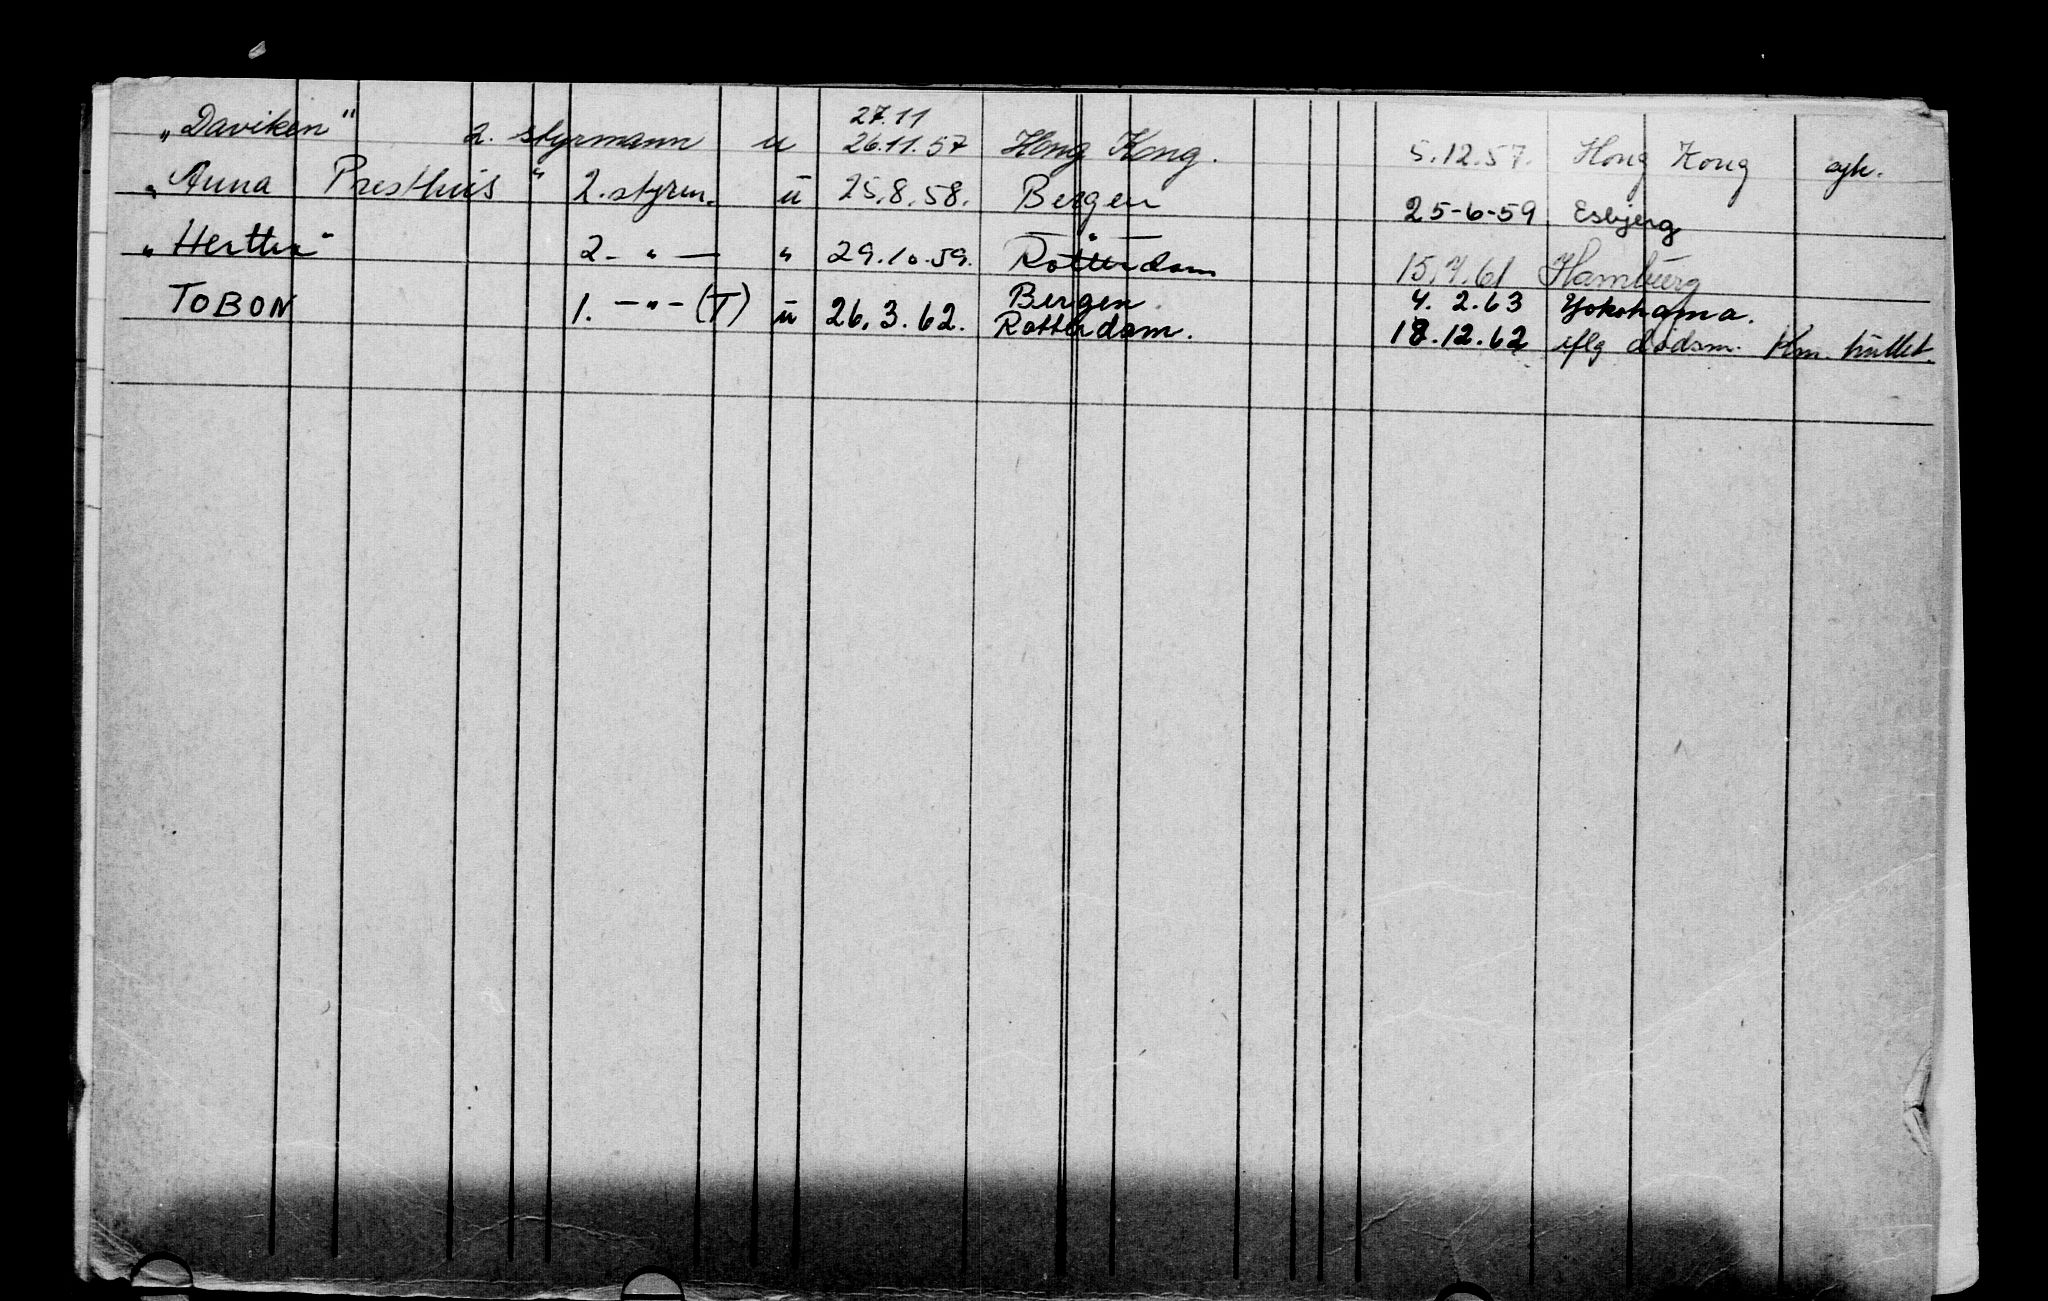 27.11
„Daviken" 2. styrmann u 26.11.57 Hong Kong. 5.12.57. Hong Kong syk.
„Anna Presthus" 2. styrm. u 25.8.58. Bergen 25-6-59 Esbjerg
„Hertha" 2. — " — " 29.10.59. — " — Rotterdam 15.7.61 Hamburg
TOBON 1. — " — (T) u 26.3.62. Bergen Rotterdam. 4.2.63 Yokohama.
18.12.62 iflg dødsm.